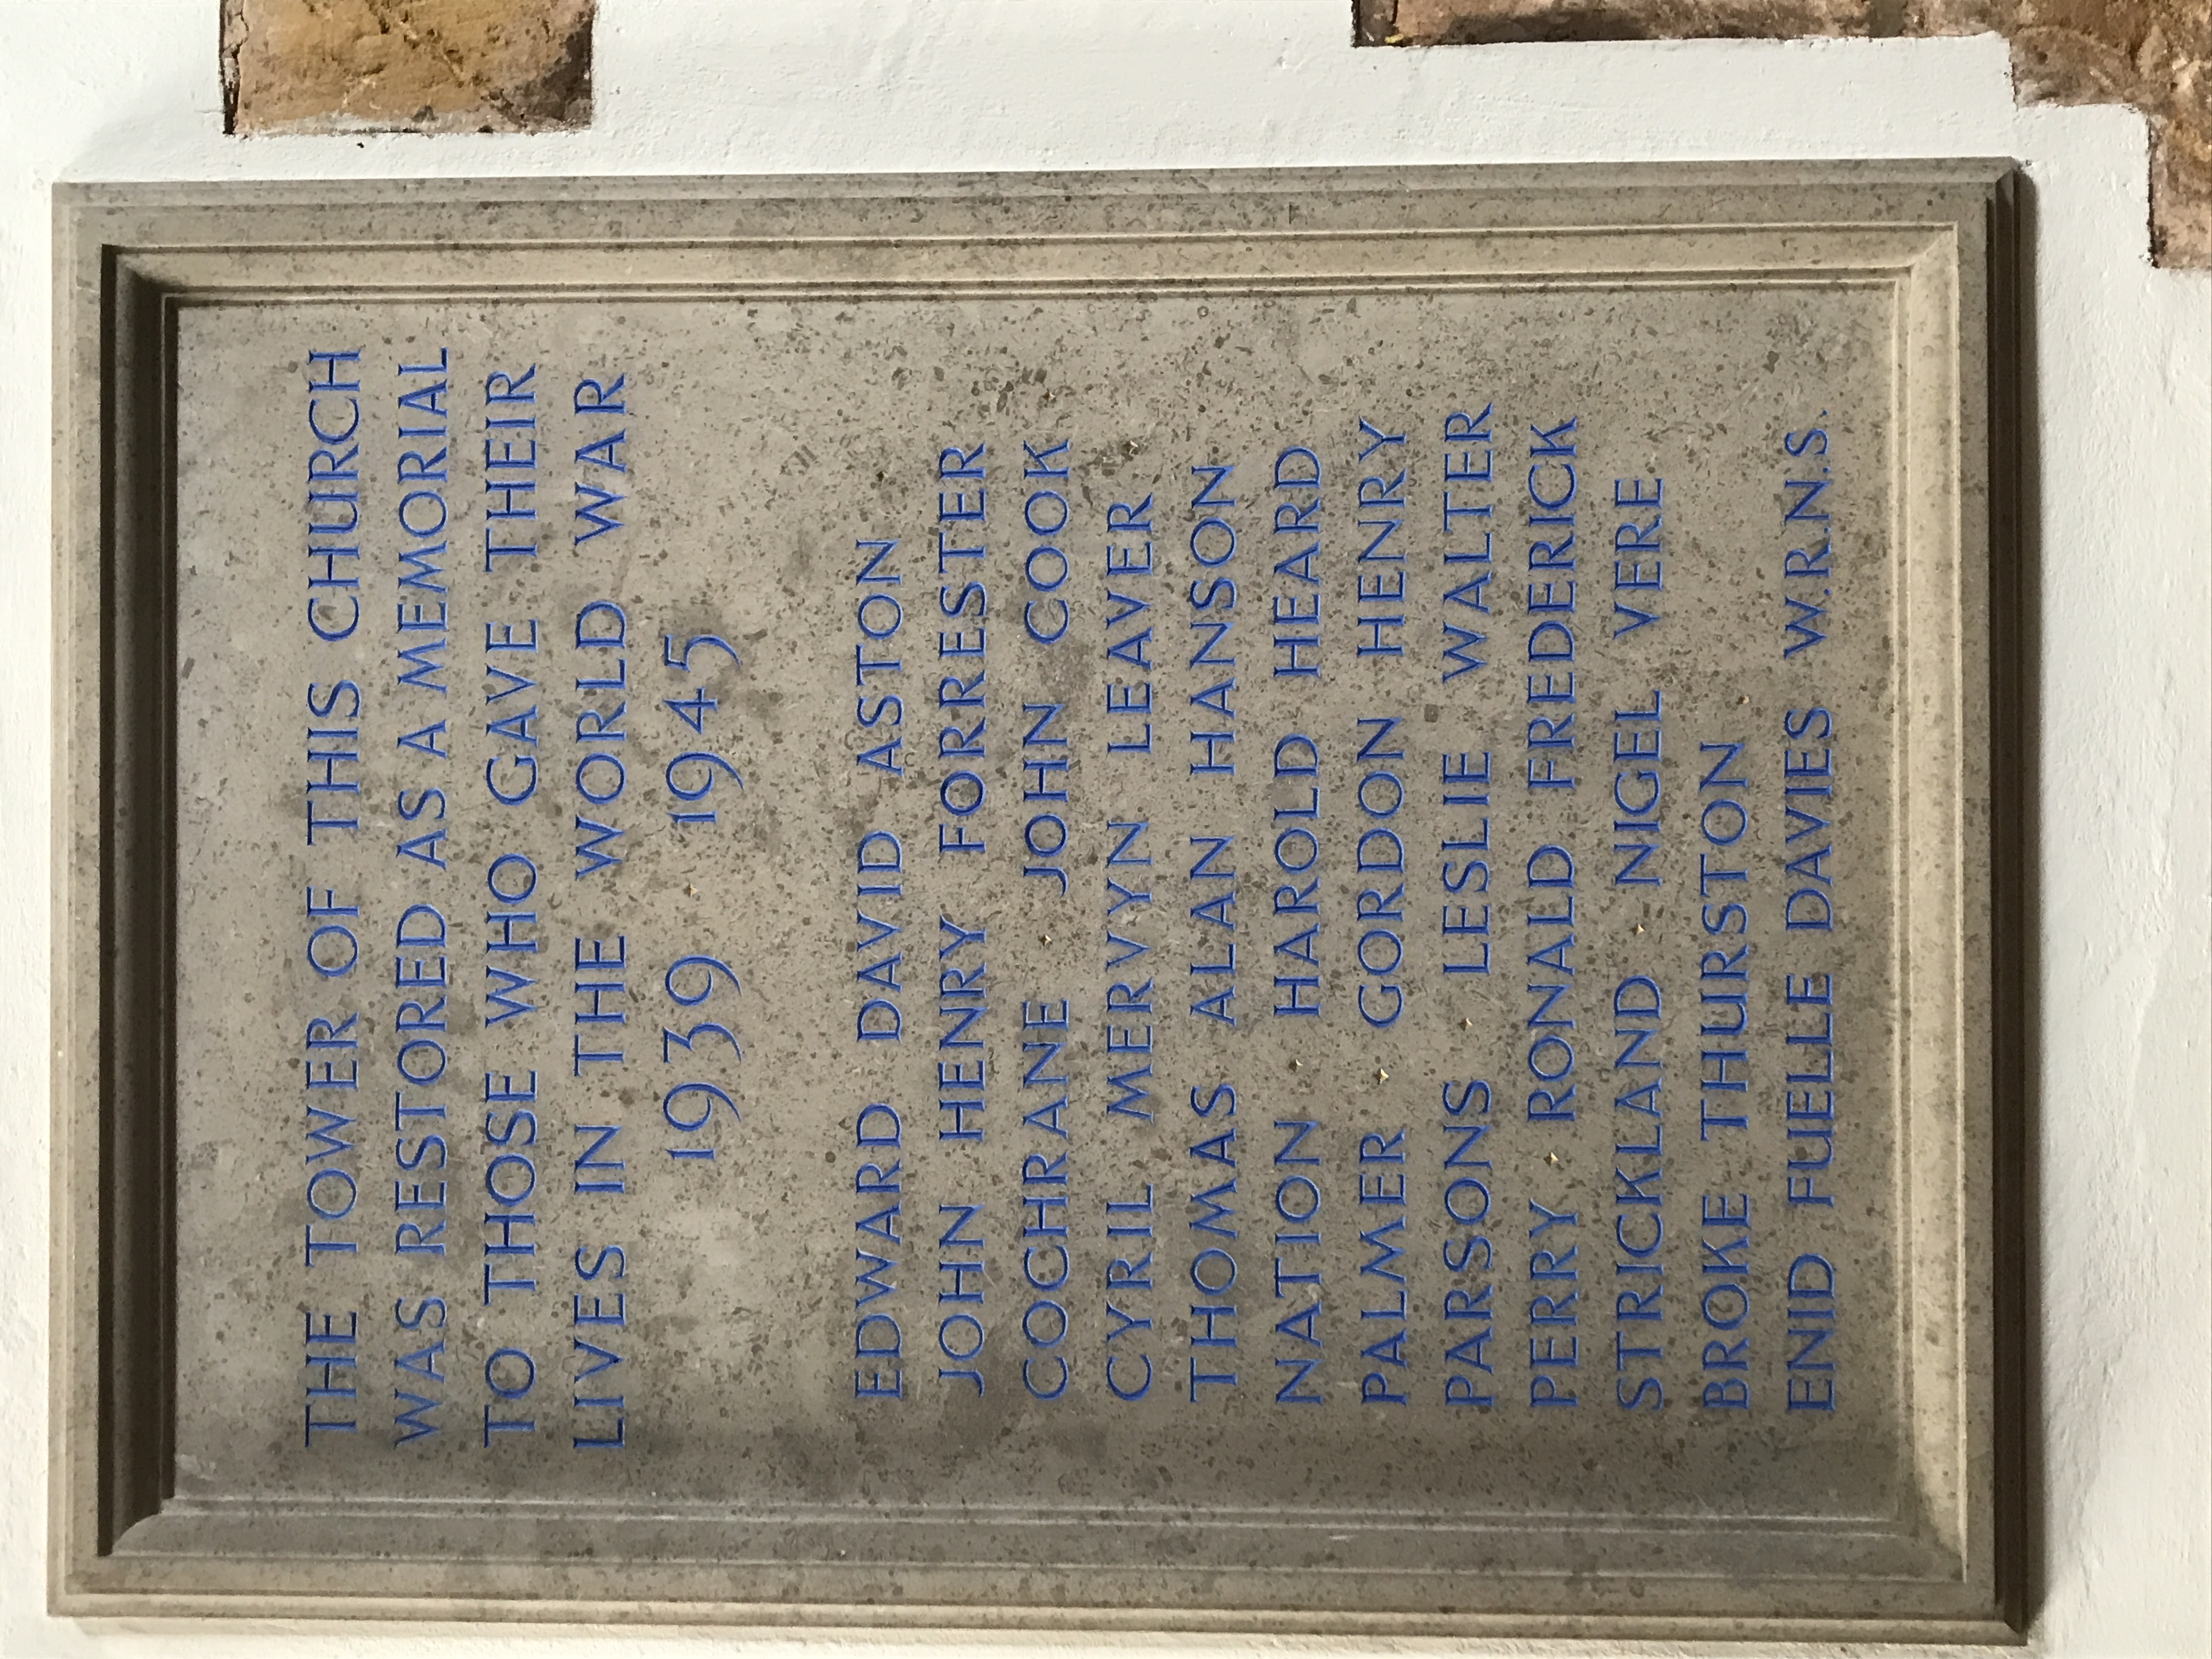 THE TOWER OF THIS CHURCH
WAS RESTORED AS A MEMORIAL
TO THOSE WHO GAVE THEIR
LIVES IN THE WORLD WAR
1939 1945
EDWARD DAVID ASTON
JOHN HENRY FORRESTER
COCHRANE · JOHN COOK
CYRIL MERVYN LEAVER
THOMAS ALAN HANSON
NATION · HAROLD HEARD
PALMER · GORDON HENRY
PARSONS · LESLIE WALTER
PERRY · RONALD FREDERICK
STRICKLAND · NIGEL VERE
BROKE THURSTON
ENID FUELLE DAVIES W.R.N.S.